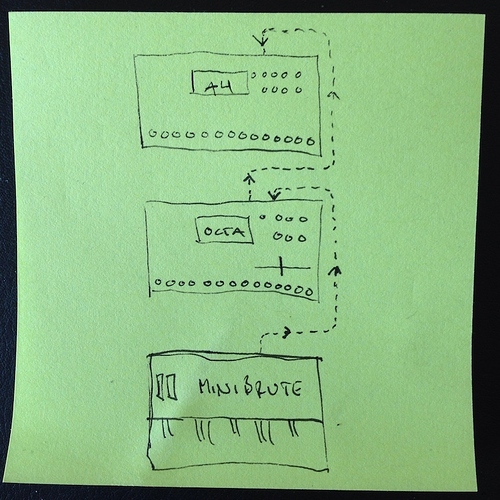 A4
OCTA
MINIBRUTE